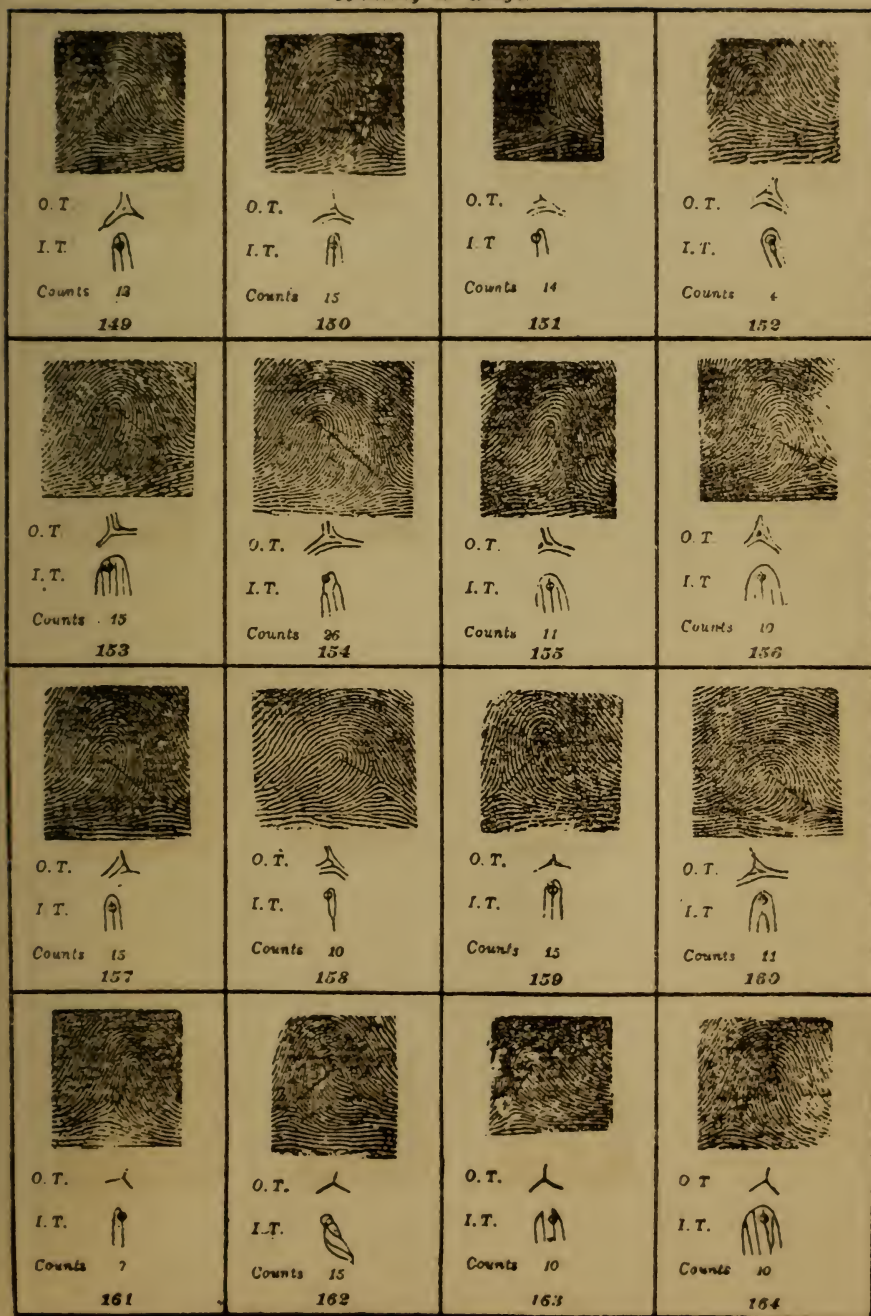 O. T.
I. T.
Counts 13
149
O. T.
I. T.
Counts 15
150
O. T.
I. T
Counts 14
151
O. T.
I. T.
Counts 4
152
O. T
I. T.
Counts 15
153
O. T.
I. T.
Counts 26
154
O. T.
I. T.
Counts 11
155
O. T
I. T
Counts 10
156
O. T.
I T.
Counts 15
157
O. T.
I. T.
Counts 10
158
O. T.
I. T.
Counts 15
159
O. T.
I. T
Counts 11
160
O. T.
I. T.
Counts 7
161
O. T.
I. T.
Counts 15
162
O. T.
I. T.
Counts 10
163
O T
I. T.
Counts 10
164